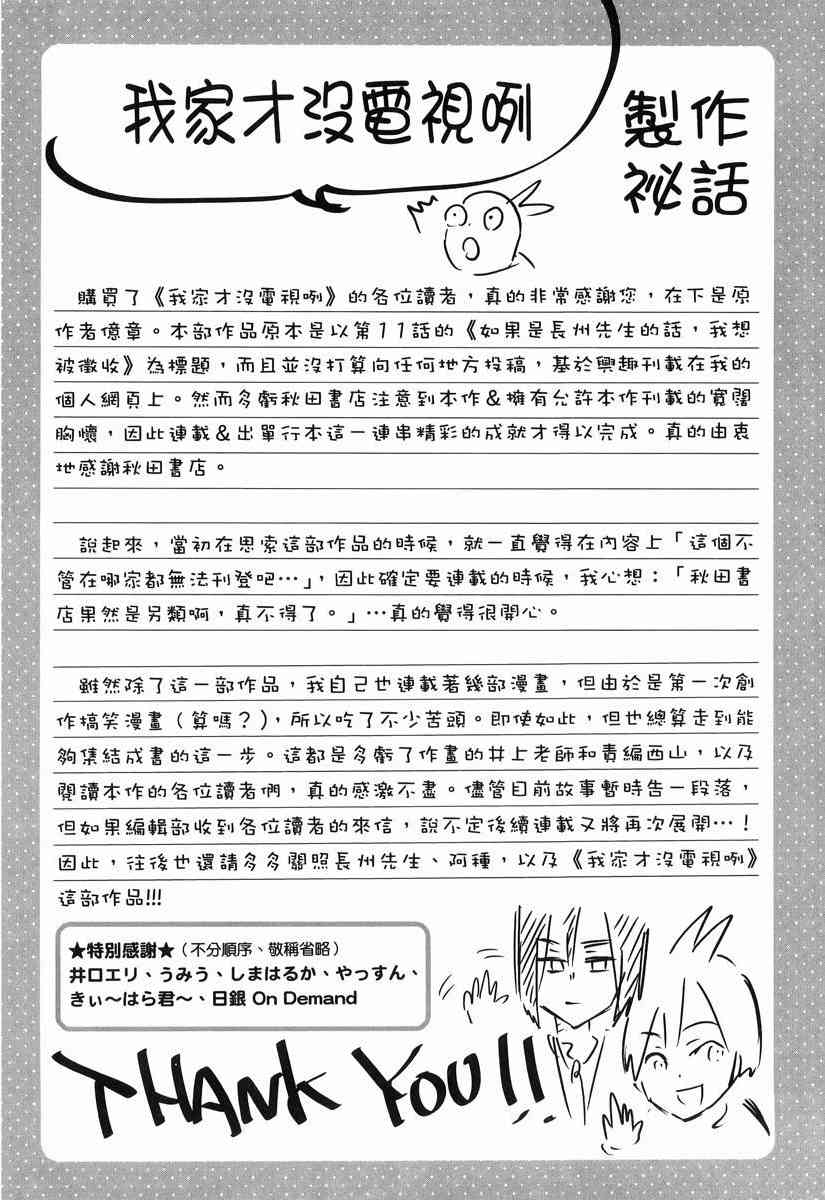 我家才沒電視咧
製作
祕話
購買了《我家才沒電視咧》的各位讀者，真的非常感謝您，在下是原
作者億章。本部作品原本是以第11話的《如果是長州先生的話，我想
被徵收》為標題，而且並沒打算向任何地方投稿，基於興趣刊載在我的
個人網頁上。然而多虧秋田書店注意到本作&擁有允許本作刊載的寬闊
胸懷，因此連載&出單行本這一連串精彩的成就才得以完成。真的由衷
地感謝秋田書店。
說起來，當初在思索這部作品的時候，就一直覺得在內容上「這個不
管在哪家都無法刊登吧…」，因此確定要連載的時候，我心想：「秋田書
店果然是另類啊，真不得了。」…真的覺得很開心。
雖然除了這一部作品，我自己也連載著幾部漫畫，但由於是第一次創
作搞笑漫畫（算嗎？），所以吃了不少苦頭。即使如此，但也總算走到能
夠集結成書的這一步。這都是多虧了作畫的井上老師和責編西山，以及
閱讀本作的各位讀者們，真的感激不盡。儘管目前故事暫時告一段落，
但如果編輯部收到各位讀者的來信，說不定後續連載又將再次展開…！
因此，往後也還請多多關照長州先生、阿種，以及《我家才沒電視咧》
這部作品!!!
★特別感謝★（不分順序、敬稱省略）
井口エリ、うみう、しまはるか、やっすん、
きぃ～はら君～、日銀 On Demand
THANK YOU!!